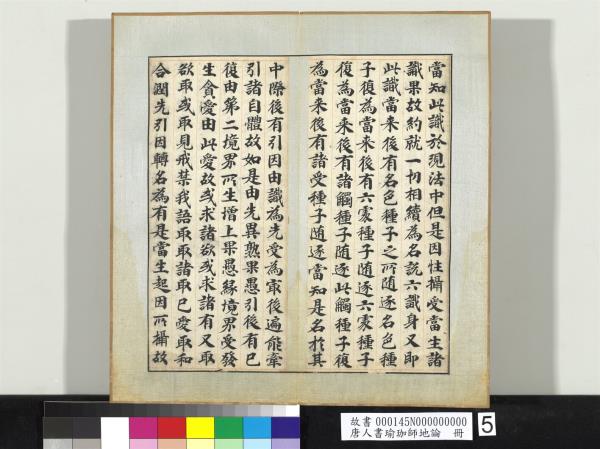 當知此識於現法中但是因性攝受當生諸
識果故約就一切相續為名說六識身又即
此識當來後有名色種子之所隨逐名色種
子復為當來後有六處種子隨逐六處種子
復為當來後有諸觸種子隨逐此觸種子復
為當來後有諸受種子隨逐當知是名於其
中際後有引因由識為先受為㝡後遍能牽
引諸自體故如是由先異熟果愚引後有已
復由第二境界所生增上果愚緣境界受發
生貪愛由此愛故或求諸欲或求諸有又取
欲取或取見戒禁我語取取諸取已愛取和
合潤先引因轉名為有是當生起因所攝故
故書 000145N000000000
唐人書瑜珈師地論 冊
5